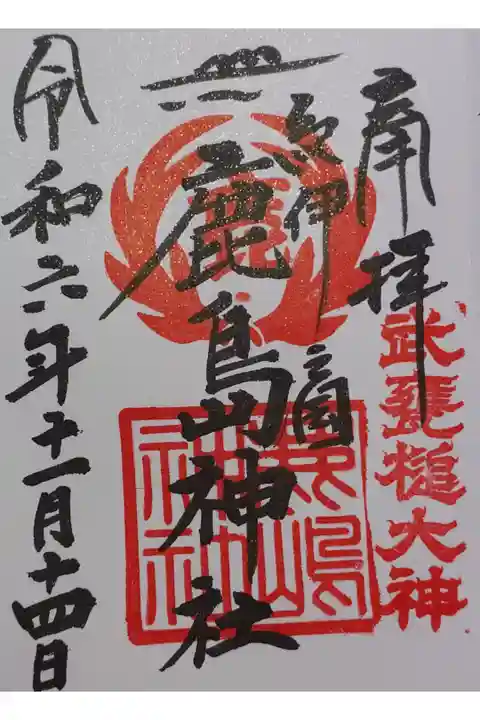 奉拝
武甕槌大神
紀伊國
鹿島神社
鹿嶋神社
令和六年十一月十四日